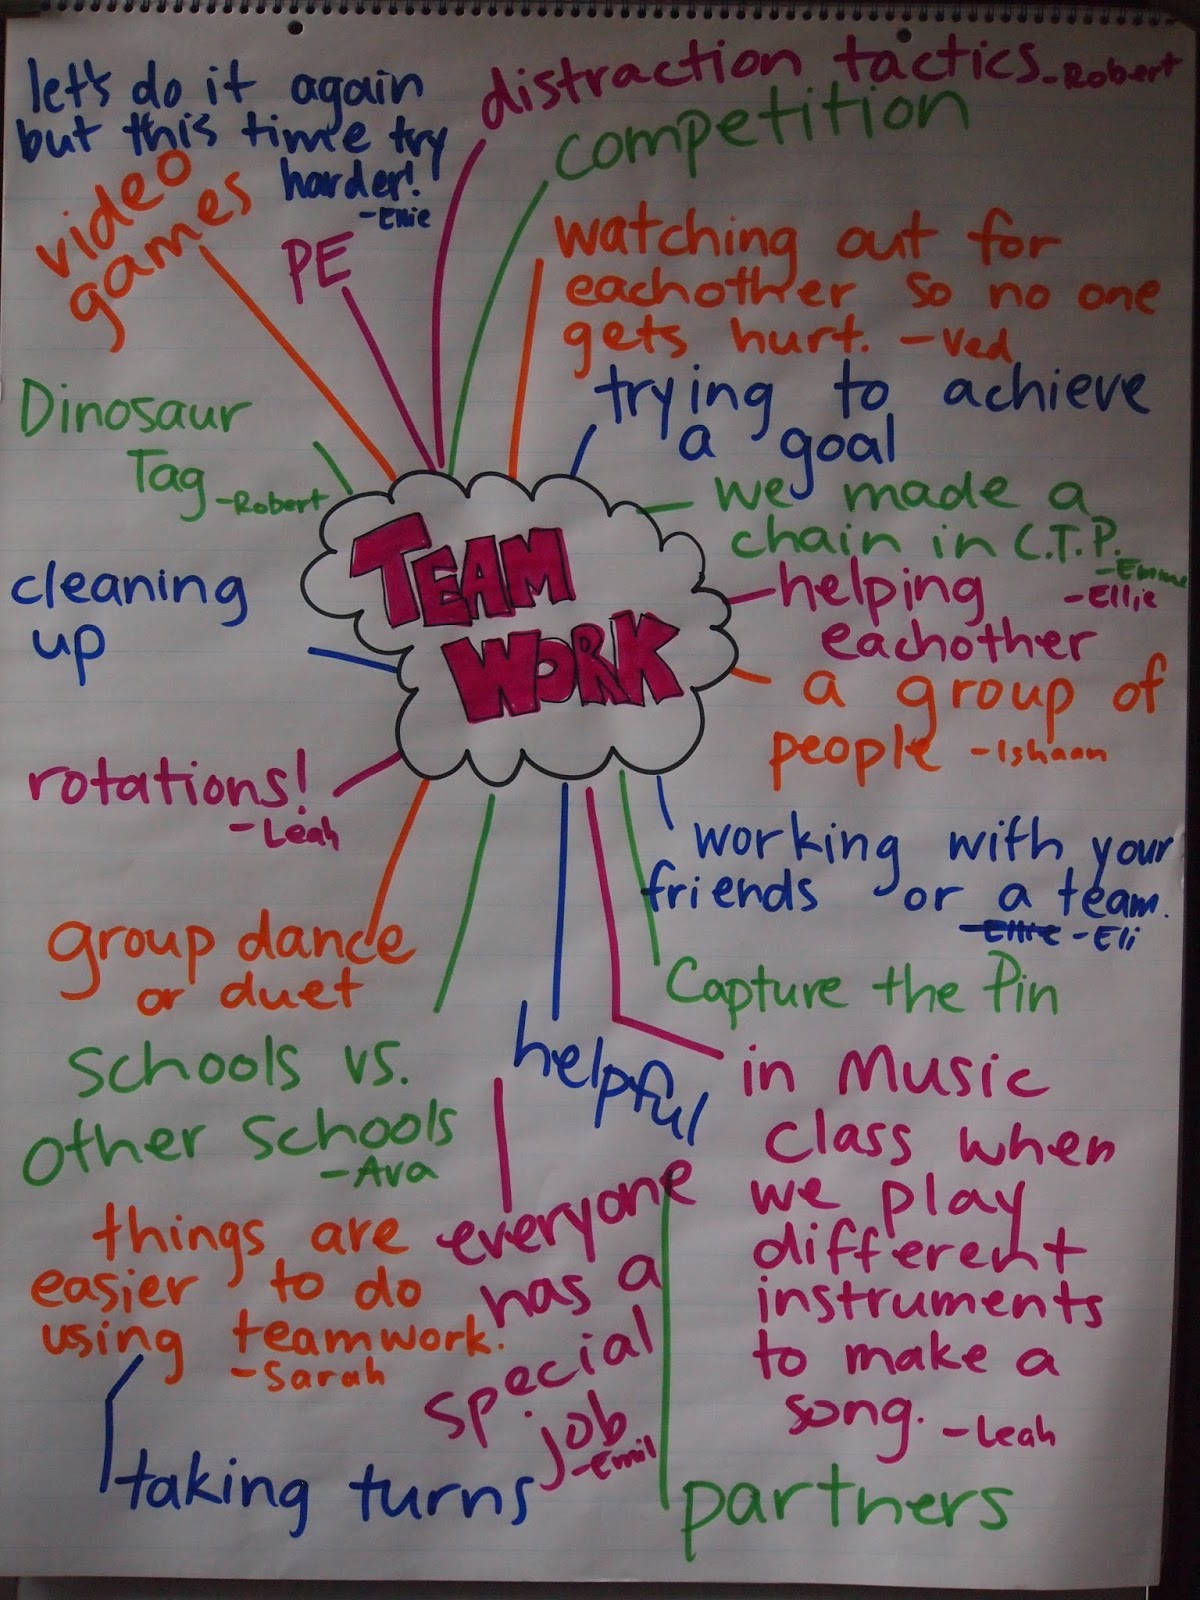 let's do it again
but this time try
harder!
-Ellie
distraction tactics -Robert
competition
video
games
PE
watching out for
eachother so no one
gets hurt. -Ved
trying to achieve
a goal
Dinosaur
Tag -Robert
we made a
chain in C.T.P.
-Emme
TEAM
WORK
cleaning
up
helping -Ellie
eachother
a group of
people -Ishaan
rotations!
-Leah
working with your
friends or a team.
-Ellie -Eli
group dance
or duet
Capture the Pin
schools vs.
other schools
-Ava
helpful
in Music
class when
we play
different
instruments
to make a
song. -Leah
things are
easier to do
using teamwork.
-Sarah
everyone
has a
special
job
-Emil
taking turns
partners